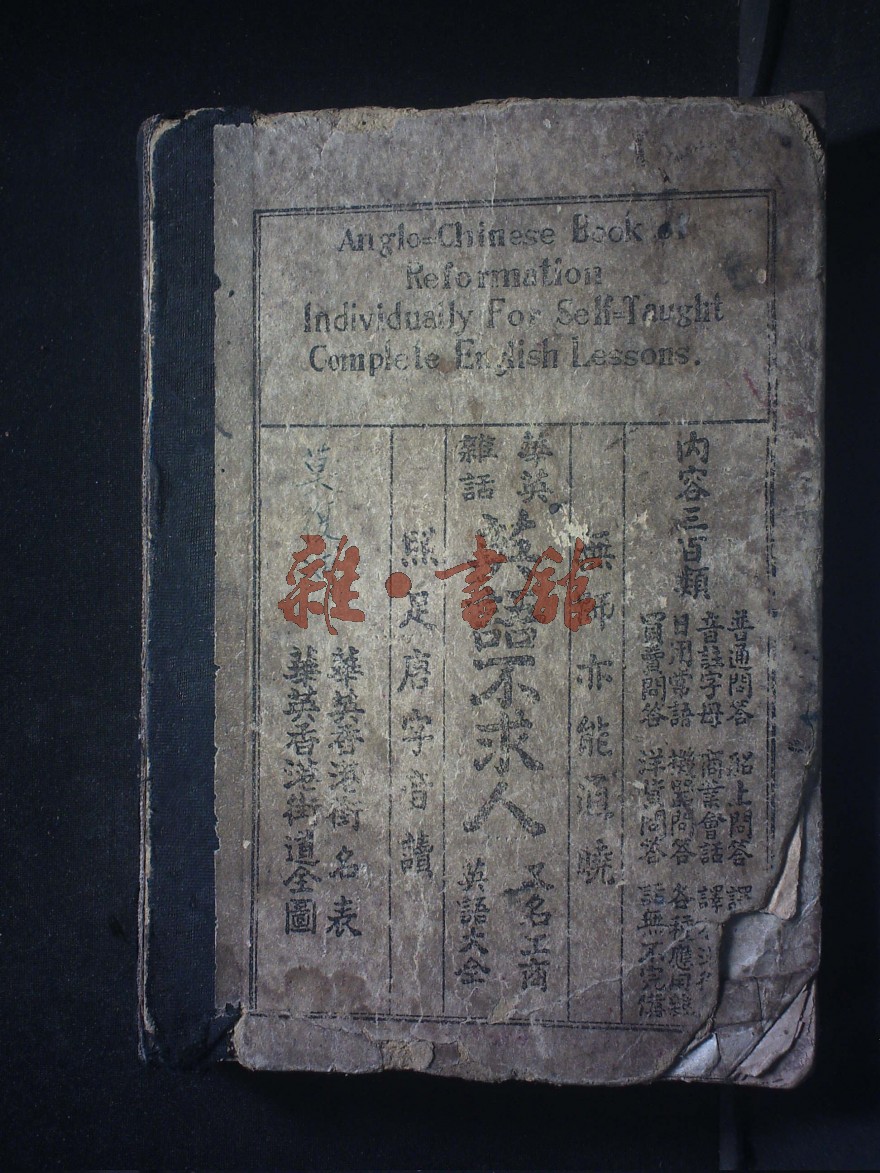 Anglo=Chinese Book of
Reformation
Individually For Self=Taught
Complete English Lessons.
內容三百類
普通問答 船上問答
音註字母 商業會話
日用常語 機器問答 各種應用雜
買賣問答 洋貨問答 話無不完備
無師亦能通曉
華英
雜話
英語不求人
又名工商
英語大全
照足唐字音讀
華英香港街名表
華英香港街道全圖
雜·書館